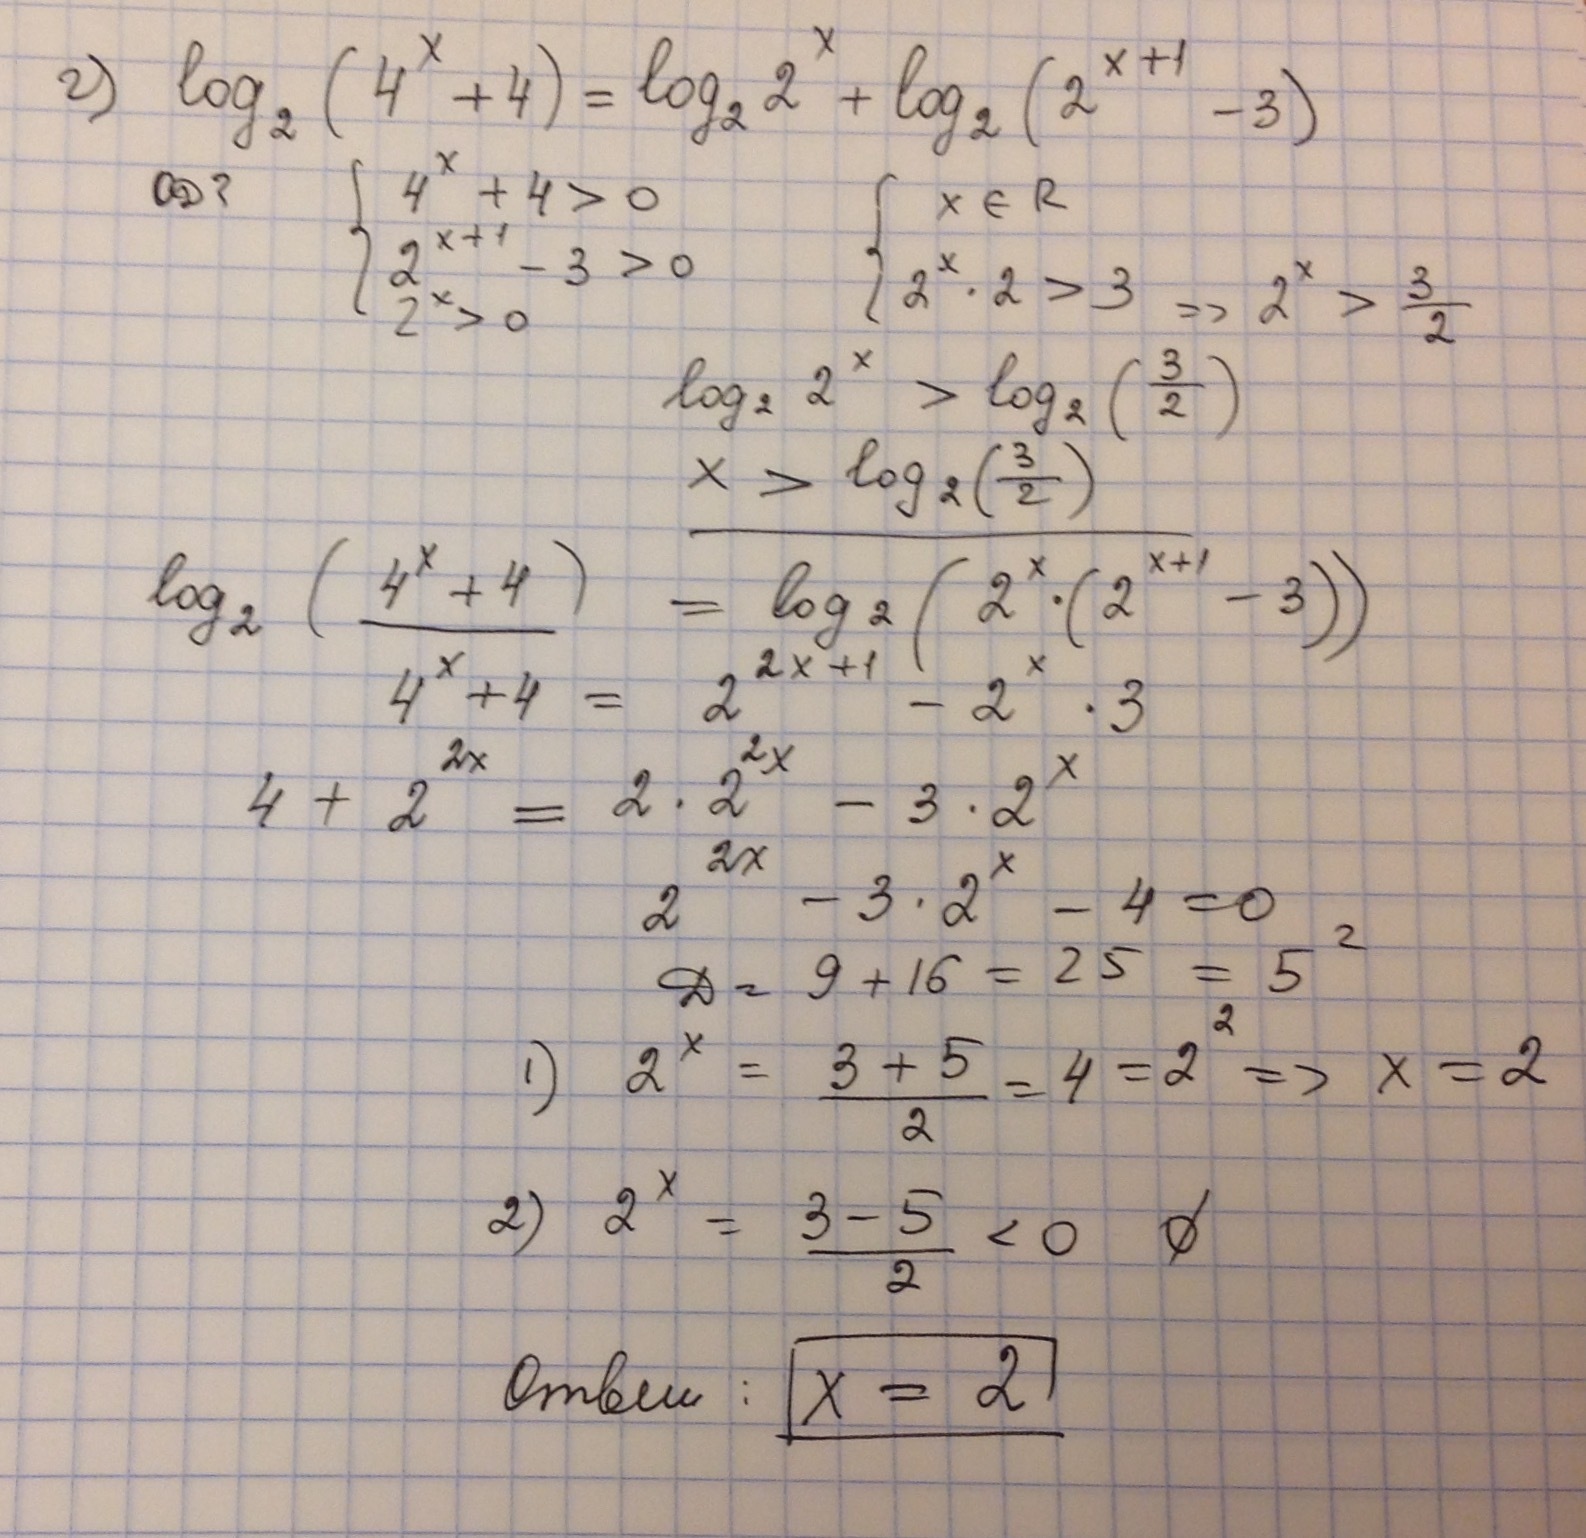 г) log₂(4^x + 4) = log₂ 2^x + log₂(2^(x+1) - 3)
ОДЗ { 4^x + 4 > 0 { x ∈ R
2^(x+1) - 3 > 0 2^x · 2 > 3 => 2^x > 3/2
2^x > 0
log₂ 2^x > log₂(3/2)
x > log₂(3/2)
log₂(4^x + 4) = log₂(2^x · (2^(x+1) - 3))
4^x + 4 = 2^(2x+1) - 2^x · 3
4 + 2^(2x) = 2 · 2^(2x) - 3 · 2^x
2^(2x) - 3 · 2^x - 4 = 0
D = 9 + 16 = 25 = 5²
1) 2^x = (3 + 5)/2 = 4 = 2² => x = 2
2) 2^x = (3 - 5)/2 < 0 ∅
Ответ : x = 2